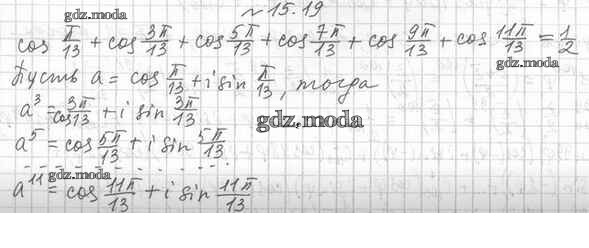 №15.19
gdz.moda
cos π/13 + cos 3π/13 + cos 5π/13 + cos 7π/13 + cos 9π/13 + cos 11π/13 = 1/2
Пусть a = cos π/13 + i sin π/13, тогда
gdz.moda
a³ = cos 3π/13 + i sin 3π/13
gdz.moda
a⁵ = cos 5π/13 + i sin 5π/13
gdz.moda
a¹¹ = cos 11π/13 + i sin 11π/13